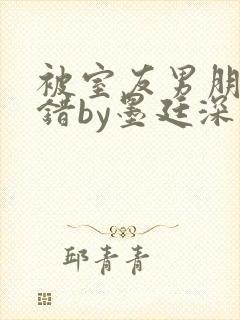 被室友男朋
错by墨廷深
邱青青